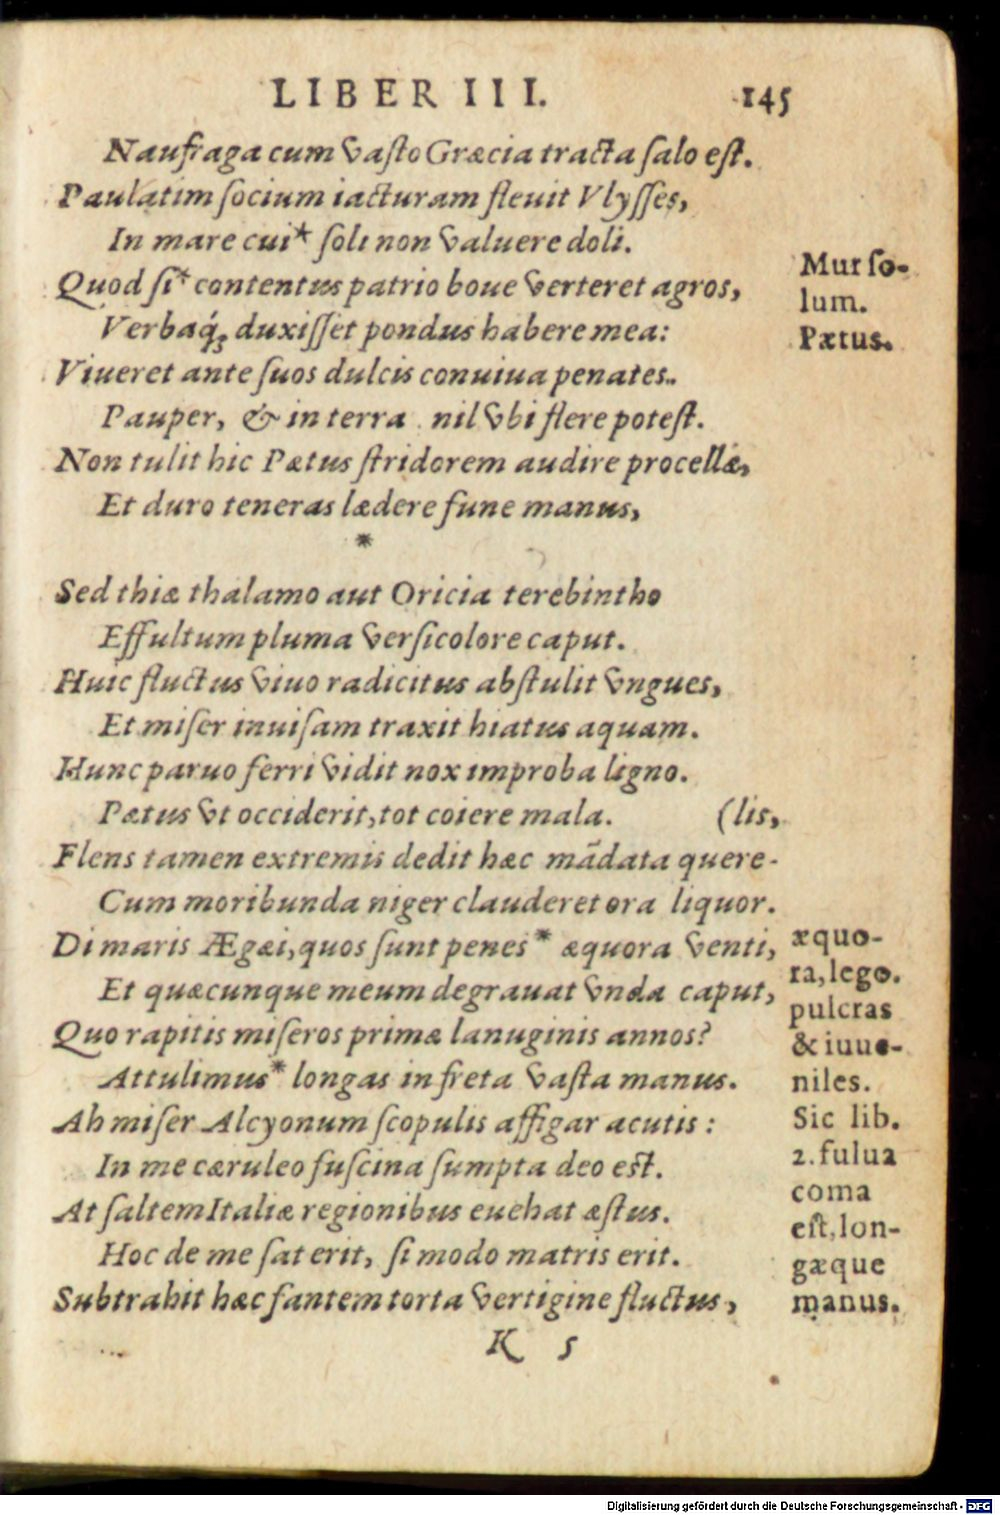 LIBER III. 145
Naufraga cum vasto Græcia tracta salo est.
Paulatim socium iacturam fleuit Vlysses,
In mare cui* soli non valuere doli.
Quod si* contentus patrio boue verteret agros,
Verbaq́; duxisset pondus habere mea:
Viueret ante suos dulcis conuiua penates.
Pauper, & in terra nil vbi flere potest.
Non tulit hic Pætus stridorem audire procellæ,
Et duro teneras lædere fune manus,
*
Sed thiæ thalamo aut Oricia terebintho
Effultum pluma versicolore caput.
Huic fluctus viuo radicitus abstulit vngues,
Et miser inuisam traxit hiatus aquam.
Hunc paruo ferri vidit nox improba ligno.
Pætus vt occiderit, tot coiere mala. (lis,
Flens tamen extremis dedit hæc mãdata quere-
Cum moribunda niger clauderet ora liquor.
Di maris Ægæi, quos sunt penes* æquora venti,
Et quæcunque meum degrauat vnda caput,
Quo rapitis miseros primæ lanuginis annos?
Attulimus* longas in freta vasta manus.
Ah miser Alcyonum scopulis affigar acutis:
In me cæruleo fuscina sumpta deo est.
At saltem Italiæ regionibus euehat æstus.
Hoc de me sat erit, si modo matris erit.
Subtrahit hæc fantem torta vertigine fluctus,
K 5
Mur so-
lum.
Pætus.
æquo-
ra, lego.
pulcras
& iuue-
niles.
Sic lib.
2. fulua
coma
est, lon-
gæque
manus.
Digitalisierung gefördert durch die Deutsche Forschungsgemeinschaft - DFG